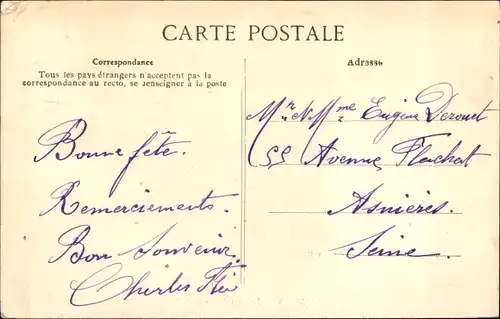 CARTE POSTALE
Correspondance
Tous les pays étrangers n'acceptent pas la
correspondance au recto, se renseigner à la poste
Bonne fête.
Remerciements.
Bon Souvenir
Charles
Adresse
Mr & Mme Eugène Derouet
55 Avenue Flachat
Asnières.
Seine.